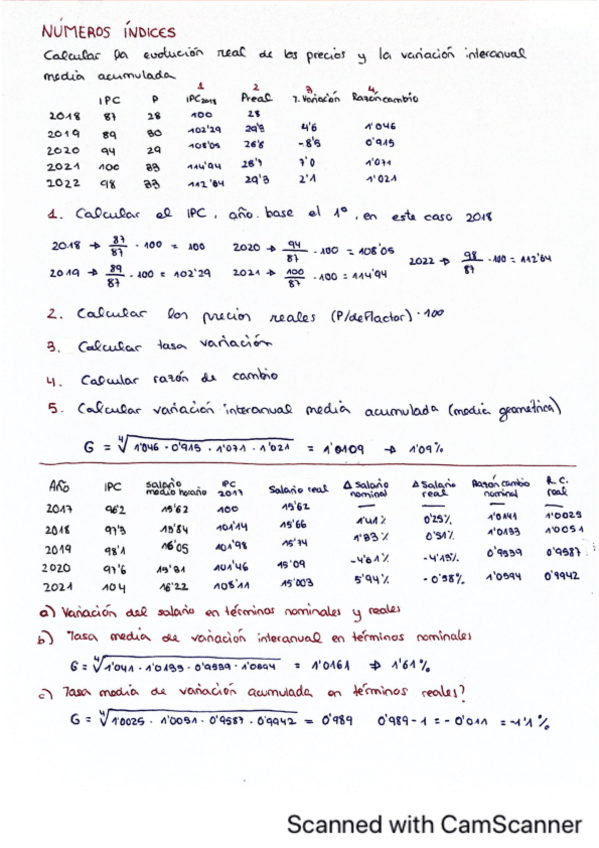 NÚMEROS ÍNDICES
Calcular la evolución real de los precios y la variación interanual
media acumulada
1 2 3 4
IPC P IPC2018 Preal % Variación Razón cambio
2018 87 28 100 28
2019 89 30 102'29 29'3 4'6 1'046
2020 94 29 108'05 26'8 -8'5 0'915
2021 100 33 114'94 28'7 7'0 1'071
2022 98 33 112'64 29'3 2'1 1'021
1. Calcular el IPC, año base el 1º, en este caso 2018
2018 → 87/87 · 100 = 100 2020 → 94/87 · 100 = 108'05 2022 → 98/87 · 100 = 112'64
2019 → 89/87 · 100 = 102'29 2021 → 100/87 · 100 = 114'94
2. Calcular los precios reales (P/deflactor) · 100
3. Calcular tasa variación
4. Calcular razón de cambio
5. Calcular variación interanual media acumulada (media geométrica)
G = ⁴√1'046 · 0'915 · 1'071 · 1'021 = 1'0109 → 1'09%
AÑO IPC salario medio horario IPC 2017 Salario real Δ Salario nominal Δ Salario real Razón cambio nominal R.C. real
2017 96'2 15'62 100 15'62 — — — —
2018 97'3 15'84 101'14 15'66 1'41% 0'25% 1'0141 1'0025
2019 98'1 16'05 101'98 15'74 1'33% 0'51% 1'0133 1'0051
2020 97'6 101'46 15'09 -4'61% -4'13% 0'9539 0'9587
2021 104 16'22 108'11 15'003 5'94% -0'58% 1'0594 0'9942
a) Variación del salario en términos nominales y reales
b) Tasa media de variación interanual en términos nominales
G = ⁴√1'041 · 1'0133 · 0'9539 · 1'0594 = 1'0161 ⇒ 1'61%
c) Tasa media de variación acumulada en términos reales?
G = ⁴√1'0025 · 1'0051 · 0'9587 · 0'9942 = 0'989 0'989 - 1 = -0'011 = -1'1%
Scanned with CamScanner